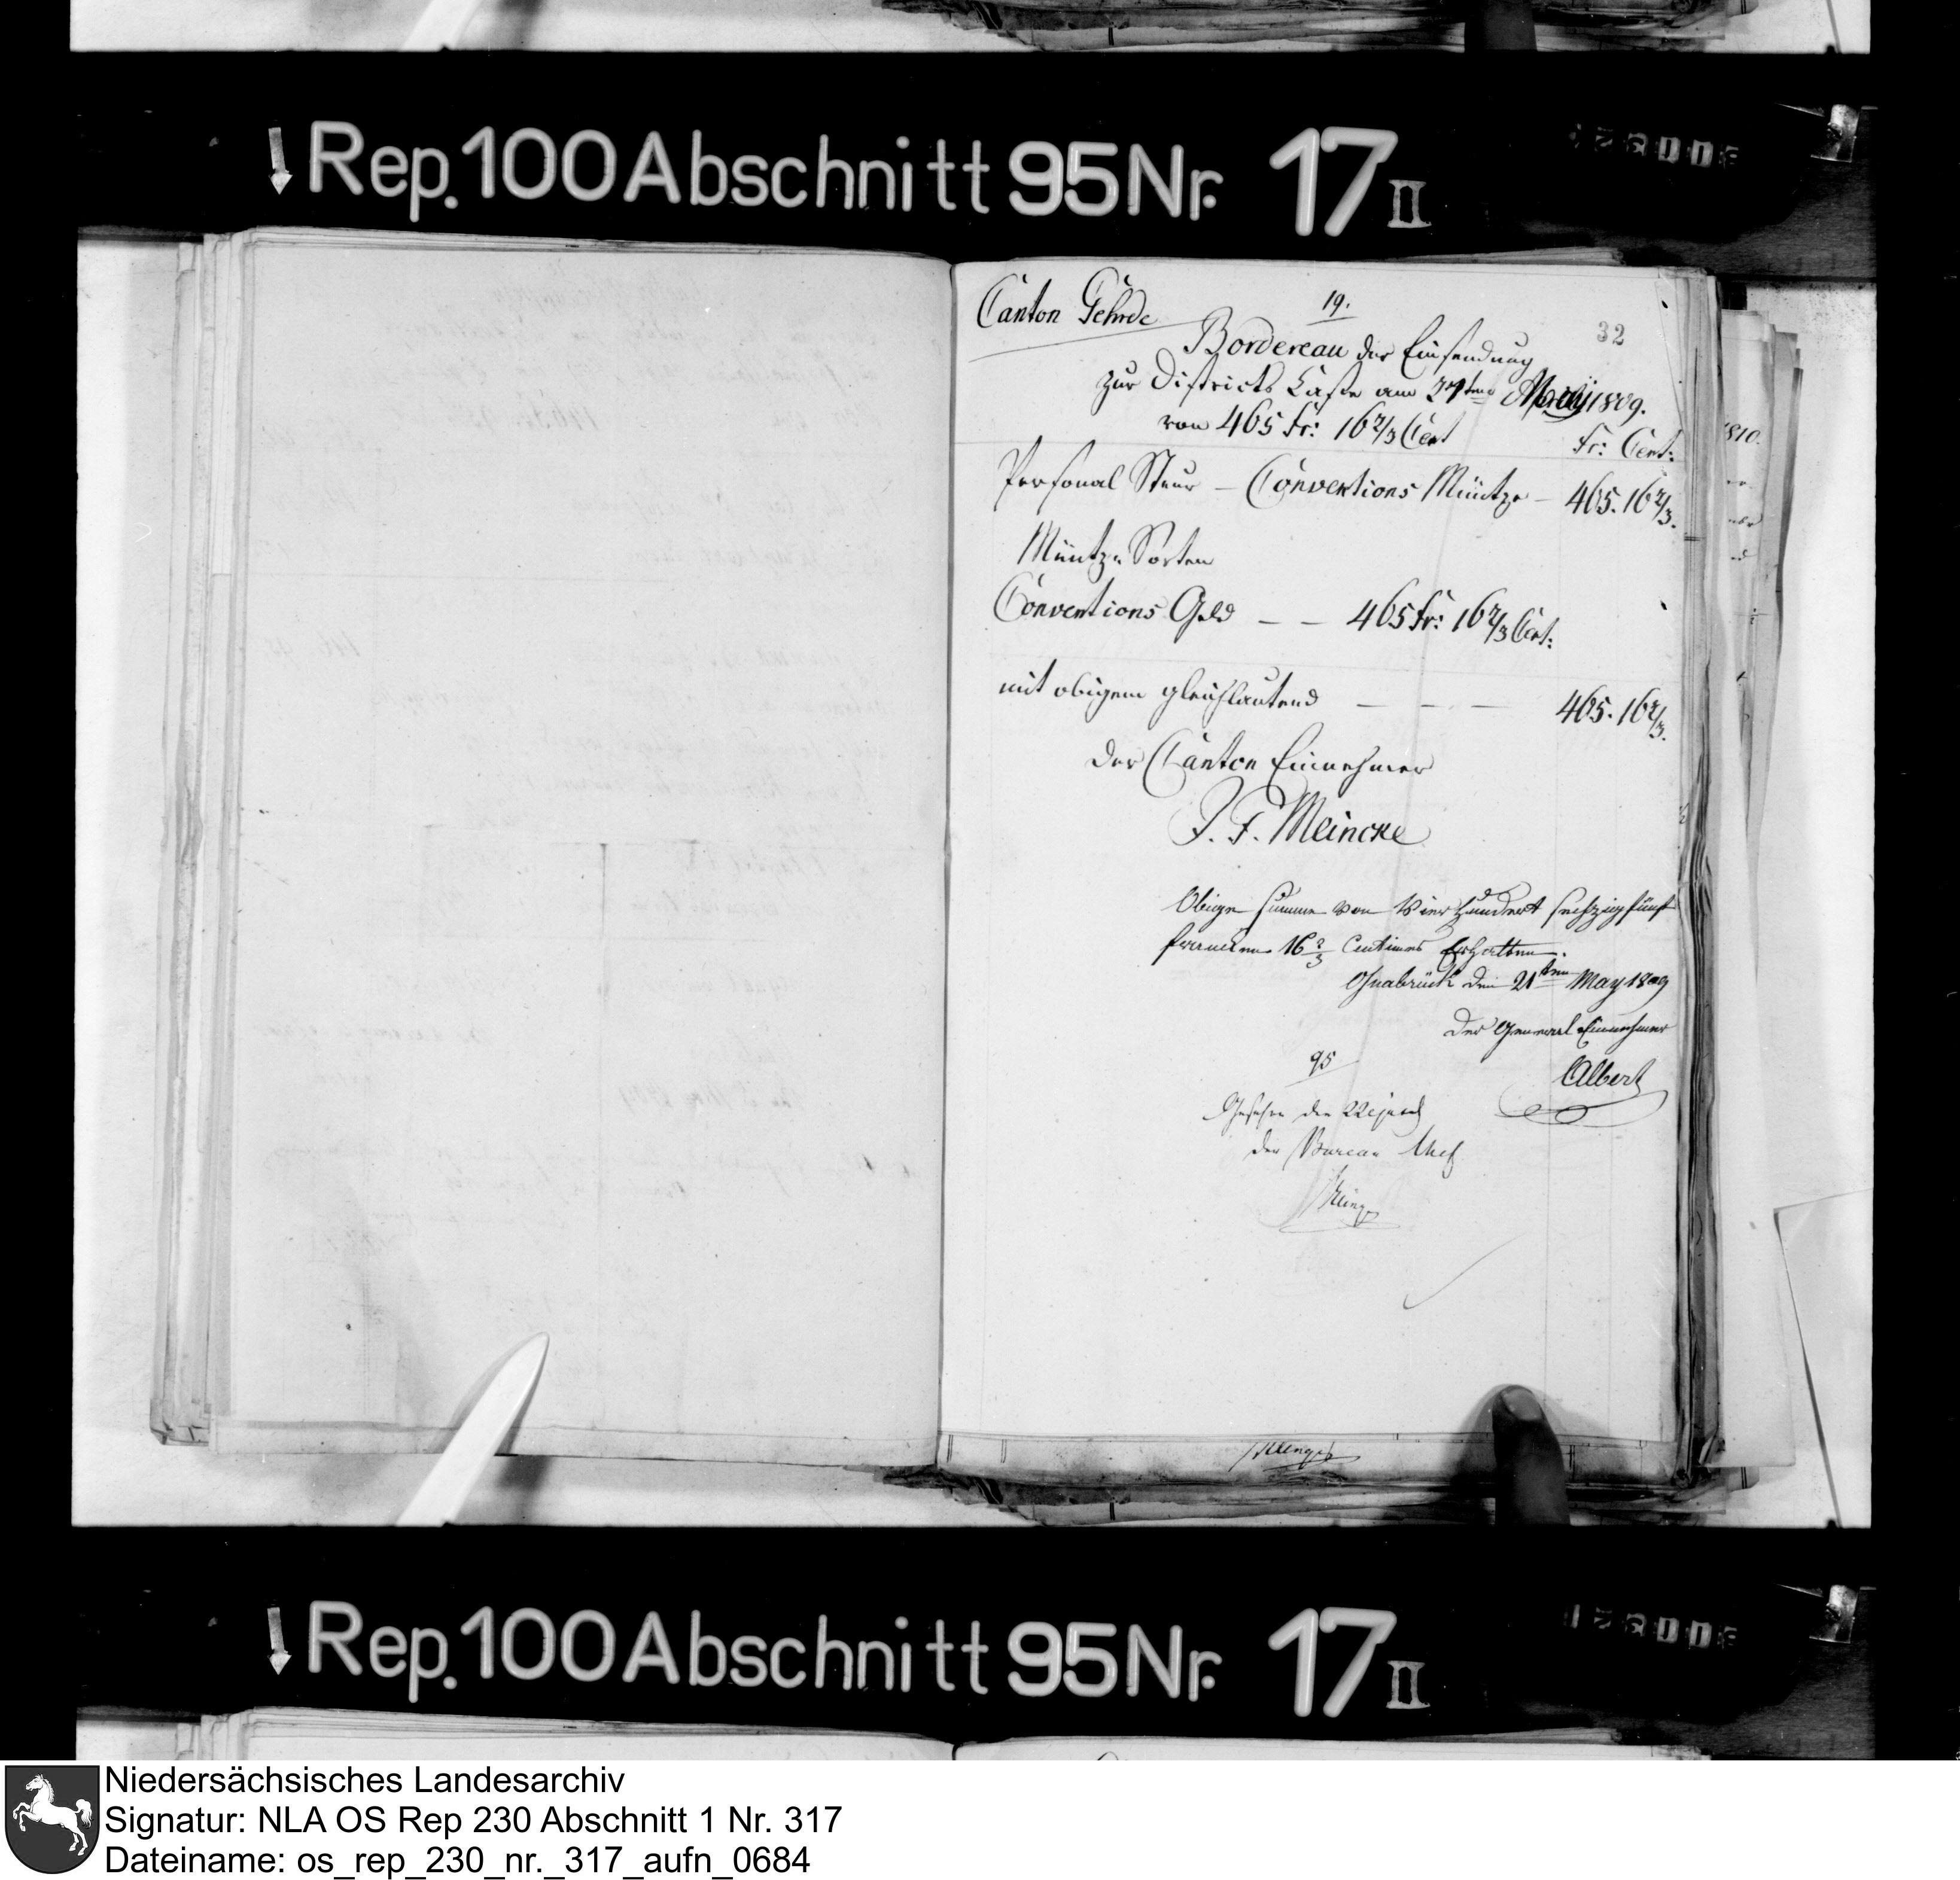 Rep. 100 Abschnitt 95 Nr. 17 II
Canton Gehrde
19.
32
Bordereau der Einsendung
zur Districts Casse am May 1809.
von 465 Fr: 16 2/3 Cent
Fr: Cent:
Personal Steur – Conventions Müntze – 465. 16 2/3.
Müntz Sorten
Conventions Geld – – 465 Fr: 16 2/3 Cent:
mit obigem gleichlautend – – – 465. 16 2/3.
Der Canton Einnehmer
J. F. Meincke
Obige Summe von Vier hundert sechzig fünf
francken 16 2/3 Centimes Erhalten.
Osnabrück den 21ten May 1809
Der General Einnehmer
Albert
95
Gesehen den 22
der Bureau Chef
1810.
Rep. 100 Abschnitt 95 Nr. 17 II
Niedersächsisches Landesarchiv
Signatur: NLA OS Rep 230 Abschnitt 1 Nr. 317
Dateiname: os_rep_230_nr._317_aufn_0684